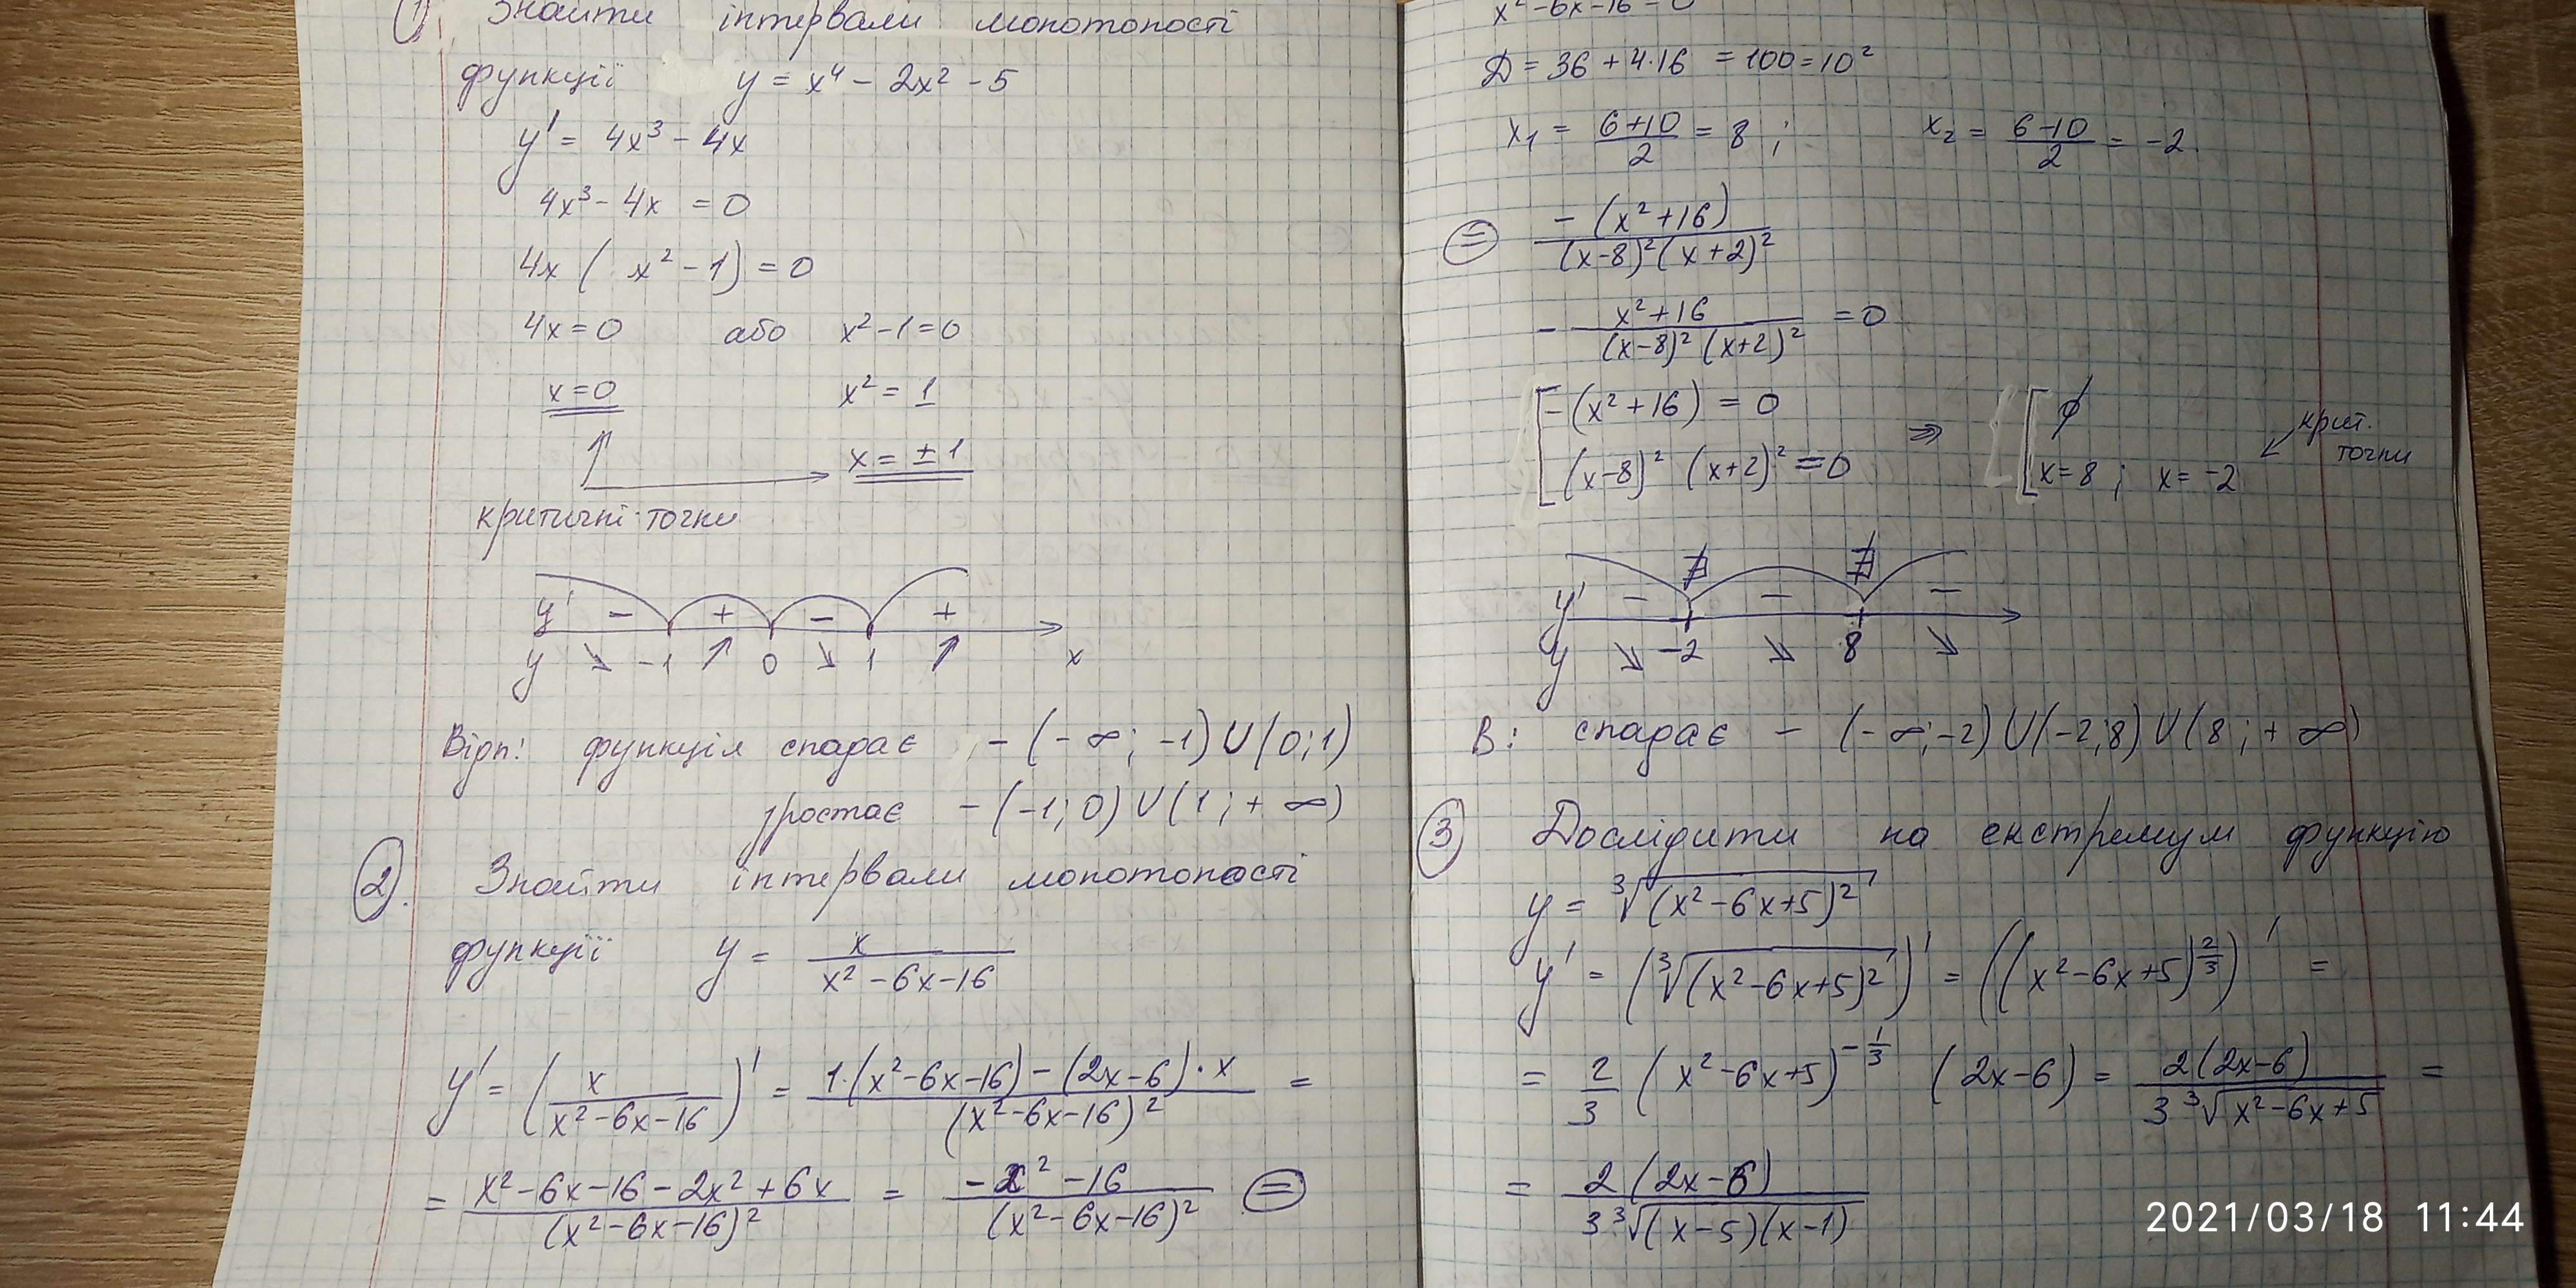 1. Знайти інтервали монотоності
функції y = x⁴ - 2x² - 5
y' = 4x³ - 4x
4x³ - 4x = 0
4x ( x² - 1) = 0
4x = 0 або x² - 1 = 0
x = 0 x² = 1
x = ± 1
критичні точки
y' - + - +
y ↘ -1 ↗ 0 ↘ 1 ↗ x
Відп: функція спадає - (- ∞; -1) U (0; 1)
зростає - (-1; 0) U (1; + ∞)
2. Знайти інтервали монотоності
функції y = x / (x² - 6x - 16)
y' = ( x / (x² - 6x - 16) )' = (1·(x² - 6x - 16) - (2x - 6)·x) / (x² - 6x - 16)² =
= (x² - 6x - 16 - 2x² + 6x) / (x² - 6x - 16)² = (-x² - 16) / (x² - 6x - 16)² ⊜
x² - 6x - 16 = 0
D = 36 + 4·16 = 100 = 10²
x₁ = (6 + 10) / 2 = 8 ; x₂ = (6 - 10) / 2 = -2.
⊜ - (x² + 16) / ((x - 8)² (x + 2)²)
- (x² + 16) / ((x - 8)² (x + 2)²) = 0
[ - (x² + 16) = 0 ⇒ [ ∅
(x - 8)² (x + 2)² = 0 x = 8 ; x = -2 крит. точки
∄ ∄
y' - - -
y ↘ -2 ↘ 8 ↘
В: спадає - (- ∞; -2) U (-2; 8) U (8 ; + ∞)
3 Дослідити на екстремум функцію
y = ∛(x² - 6x + 5)²
y' = (∛(x² - 6x + 5)²)' = ((x² - 6x + 5)^(2/3))' =
= 2/3 (x² - 6x + 5)^(-1/3) (2x - 6) = 2(2x - 6) / (3 ∛(x² - 6x + 5)) =
= 2 (2x - 6) / (3 ∛((x - 5)(x - 1)))
2021/03/18 11:44